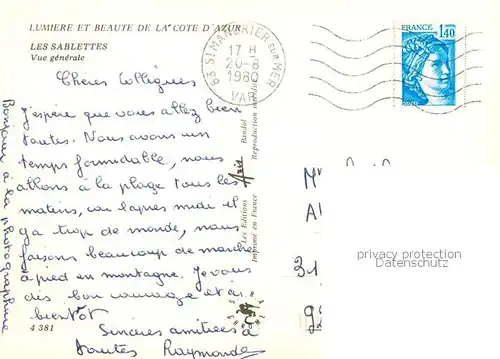 LUMIERE ET BEAUTE DE LA COTE D'AZUR
LES SABLETTES
Vue générale
Chères Collègues
J'espère que vous allez bien
toutes. Nous avons un
temps formidable, nous
allons à la plage tous les
matins, car l'après midi il
y a trop de monde, nous
faisons beaucoup de marche
à pied en montagne. Je vous
dis bon courage et à
bientôt
Sincères amitiées à
toutes Raymonde
Bonjour à la photographure
4 381
83 ST MANDRIER SUR MER
17 H
20-8
1980
VAR
FRANCE
1,40
Les Editions Aris Bandol
Imprimé en France
Reproduction interdite
31
privacy protection
Datenschutz